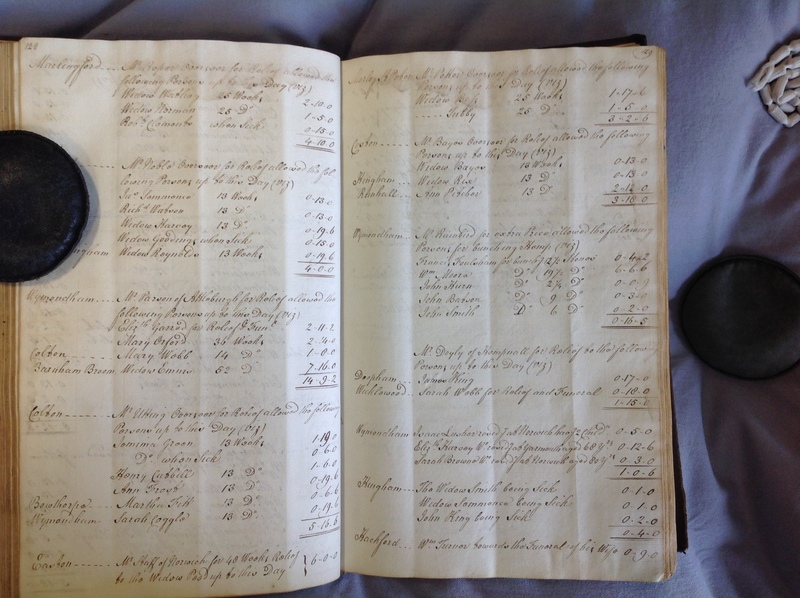 128
Marlingford Mr Roper Overseer for Relief allowed the
following Persons up to this Day (Viz)
Widow 25 Weeks 2-10-0
Widow Norman 25 Do 1-5-0
Robt Clements when Sick 0-15-0
4-10-0
Mr Noble Overseer for Relief allowed the fol
lowing Persons up to this Day (Viz)
Jas Simmons 13 Weeks 0-13-0
Richd Watson 13 Do 0-13-0
Widow Harvey 13 Do 0-19-6
Widow Godding when Sick 0-15-0
ingham Widow Reynolds 13 Weeks 0-19-6
4-0-0
Wymondham Mr Parson of Attleburgh for Relief allowed the
following Persons up to this Day (Viz)
Elizth Garrod for Relief & Funl 2-11-2
Mary Orford 36 Weeks
Colton Mary Webb 14 Do 1-8-0
Barnham Broom Widow Emms 52 Do 7-16-0
14-9-2
Colton Mr Utting Overseer for Relief allowed the following
Persons up to this Day (Viz)
Jemima Green 13 Weeks 1-19-0
Do when Sick 0-6-0
Henry Cubbell 13 Do 1-6-0
Ann Frost 13 Do 0-19-6
Bowthorpe Martha Fitt 13 Do 0-6-6
Wymondham Sarah Coggle 13 Do 0-19-6
5-16-6
Easton Mr Staff of Norwich for 48 Weeks Relief
to the Widow up to this Day 6-0-0
129
Morley St Peters Mr Potter Overseer for Relief allowed the following
Persons up to this Day (Viz)
Widow 25 Weeks 1-17-6
Tubby 25 Do 1-5-0
3-2-6
Coston Mr Bayes Overseer for Relief allowed the following
Persons up to this Day (Viz)
Widow Bayes 13 Weeks 0-13-0
Hingham Widow Rix 13 Do 0-13-0
Ann Pitcher 13 Do 2-12-0
3-18-0
Wymondham Mr for extra Price allowed the following
Persons for bunching Hemp (Viz)
Francis for bunchg Stones
Wm Do
John Hurn Do
John Batson Do 9 Do
John Smith Do 6 Do 0-2-0
0-16-5
Mr Doyly of Hempnall for Relief to the follow
Persons up to this Day (Viz)
Deopham James King 0-17-0
Wicklewood Sarah Webb for Relief and Funeral 0-18-0
1-15-0
Wymondham Isaac at Norwich 2 Childn 0-5-0
Elizth Harvey Wo resid. at Yarmouth aged 68 yrs 0-12-6
Sarah Browne Wo resid. at Norwich aged 80 yrs 0-3-0
1-0-6
Hingham The Widow Smith being Sick 0-1-0
Widow Simmance being Sick 0-1-0
John King being Sick 0-2-0
0-4-0
Hackford Wm Turner towards the Funeral of his Wife 0-9-0